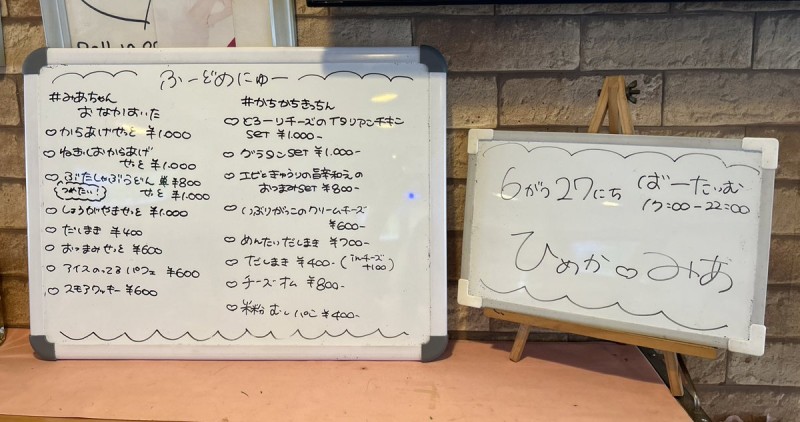 ふーどめにゅー
#みあちゃん
おなかすいた
♡からあげせっと ¥1.000
♡ねぎしおからあげ
せっと ¥1.000
♡ぶたしゃぶうどん 単¥800
つめたい! せっと ¥1.000
♡しょうがやきせっと ¥1.000
♡だしまき ¥400
♡おつまみせっと ¥600
♡アイスのってるパフェ ¥600
♡スモアクッキー ¥600
#かちかちきっちん
♡とろーりチーズのイタリアンチキン
SET ¥1.000-
♡グラタンSET ¥1.000-
♡エビときゅうりの旨辛和えの
おつまみSET ¥800-
♡いぶりがっこのクリームチーズ
¥600-
♡めんたいだしまき ¥700-
♡だしまき ¥400-(inチーズ
+100)
♡チーズオム ¥800-
♡米粉むしパン ¥400-
6がつ27にち ばーたいむ
17:00-22:00
ひめか♡みあ